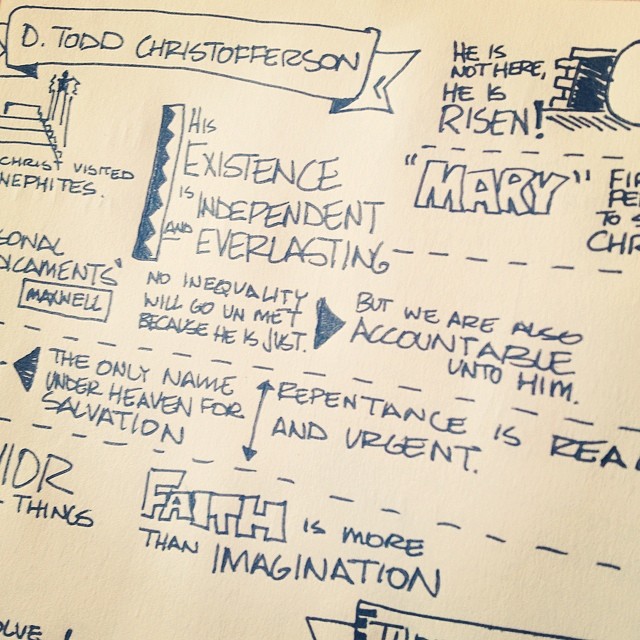 D. TODD CHRISTOFFERSON
CHRIST VISITED
NEPHITES.
HIS
EXISTENCE
IS INDEPENDENT
AND EVERLASTING
HE IS
NOT HERE,
HE IS
RISEN!
"MARY"
TO
MAXWELL
NO INEQUALITY
WILL GO UN MET
BECAUSE HE IS JUST.
BUT WE ARE ALSO
ACCOUNTABLE
UNTO HIM.
THE ONLY NAME
UNDER HEAVEN FOR
SALVATION
REPENTANCE IS REA
AND URGENT.
THINGS
FAITH IS MORE
THAN IMAGINATION